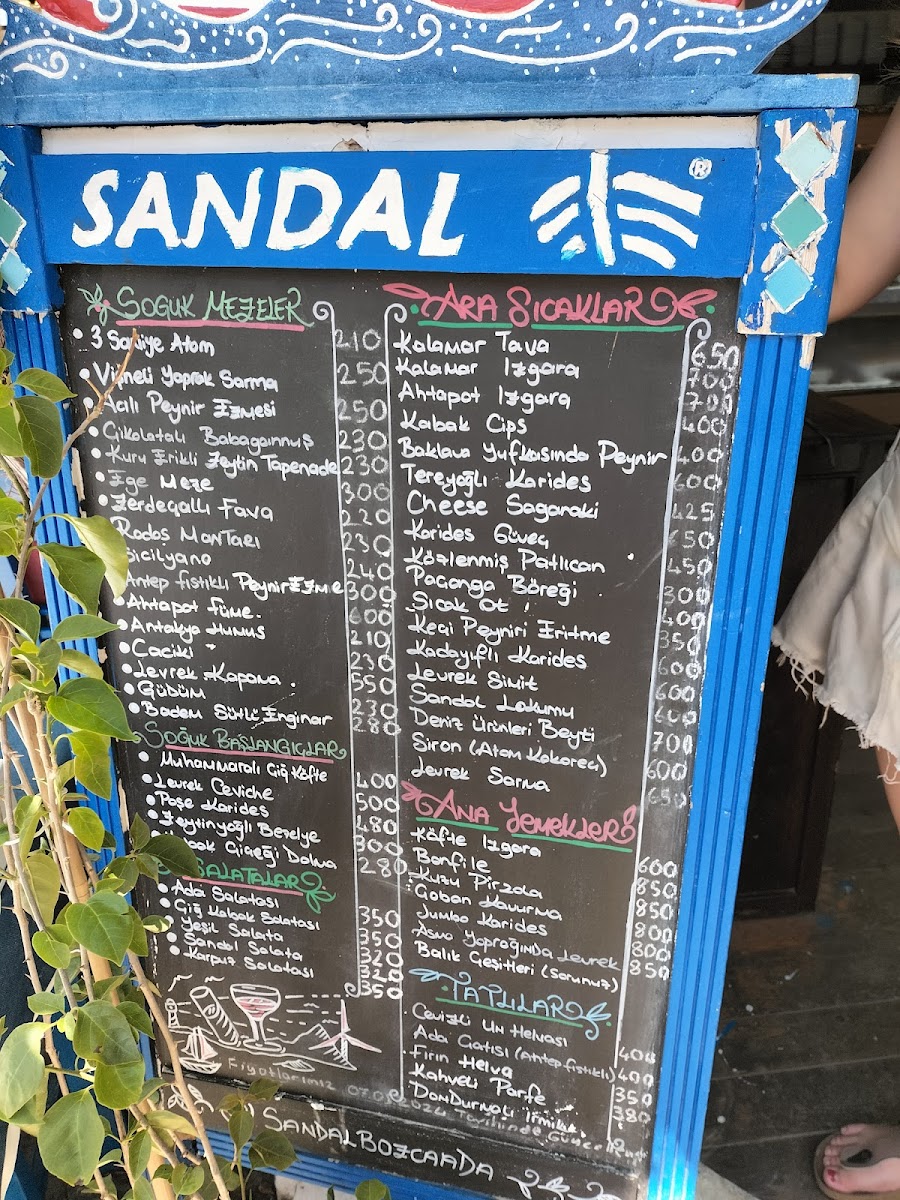 SANDAL ®
SOĞUK MEZELER
3 Saniye Atom 210
Vişneli Yaprak Sarma 250
Acılı Peynir Ezmesi 250
Çikolatalı Babagannuş 230
Kuru Erikli Zeytin Tapenade 230
Ege Meze 300
Zerdeçallı Fava 220
Rodos Mantarı 230
Sicilyano 240
Antep fıstıklı Peynir Ezme 300
Ahtapot füme 600
Antakya Humus 210
Caciki 230
Levrek Kapama 550
Güdüm 230
Badem Sütlü Enginar 280
SOĞUK BAŞLANGIÇLAR
Muhammaralı Çiğ Köfte 400
Levrek Ceviche 500
Poşe Karides 480
Zeytinyağlı Bezelye 300
Kabak Çiçeği Dolma 280
SALATALAR
Ada Salatası 350
Çiğ Kabak Salatası 350
Yeşil Salata 320
Sandal Salata 320
Karpuz Salatası 350
ARA SICAKLAR
Kalamar Tava 650
Kalamar Izgara 700
Ahtapot Izgara 700
Kabak Cips 400
Baklava Yufkasında Peynir 400
Tereyağlı Karides 600
Cheese Saganaki 425
Karides Güveç 650
Közlenmiş Patlıcan 450
Paçanga Böreği 300
Sıcak Ot 400
Keçi Peyniri Eritme 350
Kadayıflı Karides 600
Levrek Simit 600
Sandal Lokumu 600
Deniz Ürünleri Beyti 700
Siron (Atom Kokoreç) 600
Levrek Sarma 650
ANA YEMEKLER
Köfte Izgara 600
Bonfile 850
Kuzu Pirzola 850
Çoban Kavurma 800
Jumbo Karides 800
Asma Yaprağında Levrek 850
Balık Çeşitleri (Sorunuz)
TATLILAR
Cevizli Un Helvası 400
Ada Çatısı (Antep fıstıklı) 400
Fırın Helva 350
Kahveli Parfe 380
Dondurmalı İrmik
Fiyatlarımız 2024 Tarihinde
SANDAL BOZCAADA